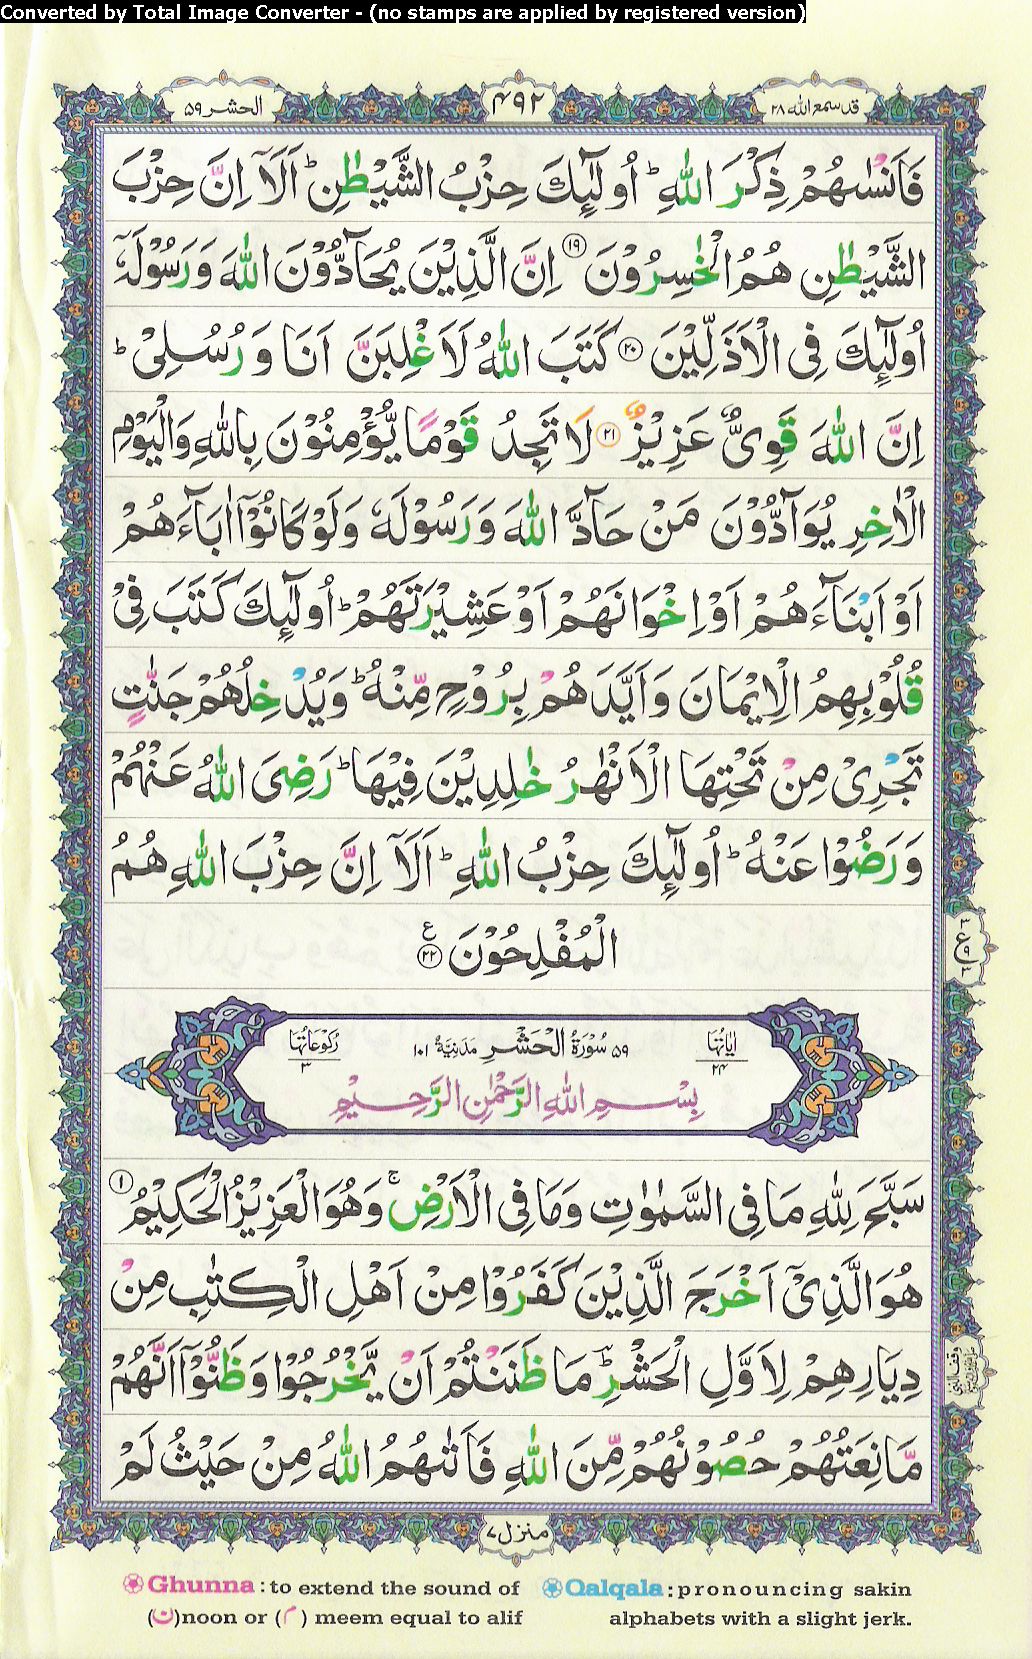 Converted by Total Image Converter - (no stamps are applied by registered version)
قدسمع الله ٢٨
٤٩٢
الحشر ٥٩
فَاَنْسٰىهُمْ ذِكْرَ اللّٰهِ ؕ اُولٰٓئِكَ حِزْبُ الشَّيْطٰنِ ؕ اَلَاۤ اِنَّ حِزْبَ
الشَّيْطٰنِ هُمُ الْخٰسِرُوْنَ ﴿١٩﴾ اِنَّ الَّذِيْنَ يُحَآدُّوْنَ اللّٰهَ وَرَسُوْلَهٗۤ
اُولٰٓئِكَ فِى الْاَذَلِّيْنَ ﴿٢٠﴾ كَتَبَ اللّٰهُ لَاَغْلِبَنَّ اَنَا وَرُسُلِىْ ؕ
اِنَّ اللّٰهَ قَوِىٌّ عَزِيْزٌ ﴿٢١﴾ لَا تَجِدُ قَوْمًا يُّؤْمِنُوْنَ بِاللّٰهِ وَالْيَوْمِ
الْاٰخِرِ يُوَآدُّوْنَ مَنْ حَآدَّ اللّٰهَ وَرَسُوْلَهٗ وَلَوْ كَانُوْۤا اٰبَآءَهُمْ
اَوْ اَبْنَآءَهُمْ اَوْ اِخْوَانَهُمْ اَوْ عَشِيْرَتَهُمْ ؕ اُولٰٓئِكَ كَتَبَ فِىْ
قُلُوْبِهِمُ الْاِيْمَانَ وَاَيَّدَهُمْ بِرُوْحٍ مِّنْهُ ؕ وَيُدْخِلُهُمْ جَنّٰتٍ
تَجْرِىْ مِنْ تَحْتِهَا الْاَنْهٰرُ خٰلِدِيْنَ فِيْهَا ؕ رَضِىَ اللّٰهُ عَنْهُمْ
وَرَضُوْا عَنْهُ ؕ اُولٰٓئِكَ حِزْبُ اللّٰهِ ؕ اَلَاۤ اِنَّ حِزْبَ اللّٰهِ هُمُ
الْمُفْلِحُوْنَ ﴿٢٢﴾ ع
٣ ع ٩ ٣
اٰيَاتُهَا ٢٤
٥٩ سُوْرَةُ الْحَشْرِ مَدَنِيَّةٌ ١٠١
رُكُوْعَاتُهَا ٣
بِسْمِ اللّٰهِ الرَّحْمٰنِ الرَّحِيْمِ
سَبَّحَ لِلّٰهِ مَا فِى السَّمٰوٰتِ وَمَا فِى الْاَرْضِ ۚ وَهُوَ الْعَزِيْزُ الْحَكِيْمُ ﴿١﴾
هُوَ الَّذِىْۤ اَخْرَجَ الَّذِيْنَ كَفَرُوْا مِنْ اَهْلِ الْكِتٰبِ مِنْ
دِيَارِهِمْ لِاَوَّلِ الْحَشْرِ ؕ مَا ظَنَنْتُمْ اَنْ يَّخْرُجُوْا وَظَنُّوْۤا اَنَّهُمْ
مَّانِعَتُهُمْ حُصُوْنُهُمْ مِّنَ اللّٰهِ فَاَتٰىهُمُ اللّٰهُ مِنْ حَيْثُ لَمْ
منزل ٧
Ghunna : to extend the sound of
(ن)noon or (م) meem equal to alif
Qalqala : pronouncing sakin
alphabets with a slight jerk.